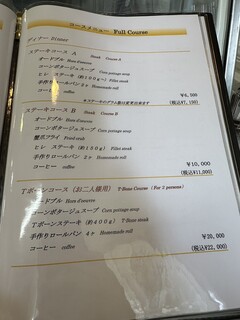 コースメニュー Full Course
ディナー Dinner
ステーキコース A Steak Course A
オードブル Hors d'oeuvre
コーンポタージュスープ Corn potage soup
ヒレ ステーキ (約100g～) Fillet steak
手作りロールパン 2ヶ Homemade roll
コーヒー coffee
※ステーキのグラム数は変更出来ます
￥6,500
(税込￥7,150)
ステーキコース B Steak Course B
オードブル Hors d'oeuvre
コーンポタージュスープ Corn potage soup
蟹爪フライ Fried crab
ヒレ ステーキ (約150g) Fillet steak
手作りロールパン 2ヶ Homemade roll
コーヒー coffee
￥10,000
(税込￥11,000)
Tボーンコース (お二人様用) T-Bone Course (For 2 persons)
オードブル Hors d'oeuvre
コーンポタージュスープ Corn potage soup
Tボーンステーキ (約400g) T-Bone steak
手作りロールパン 4ヶ Homemade roll
コーヒー coffee
￥20,000
(税込￥22,000)